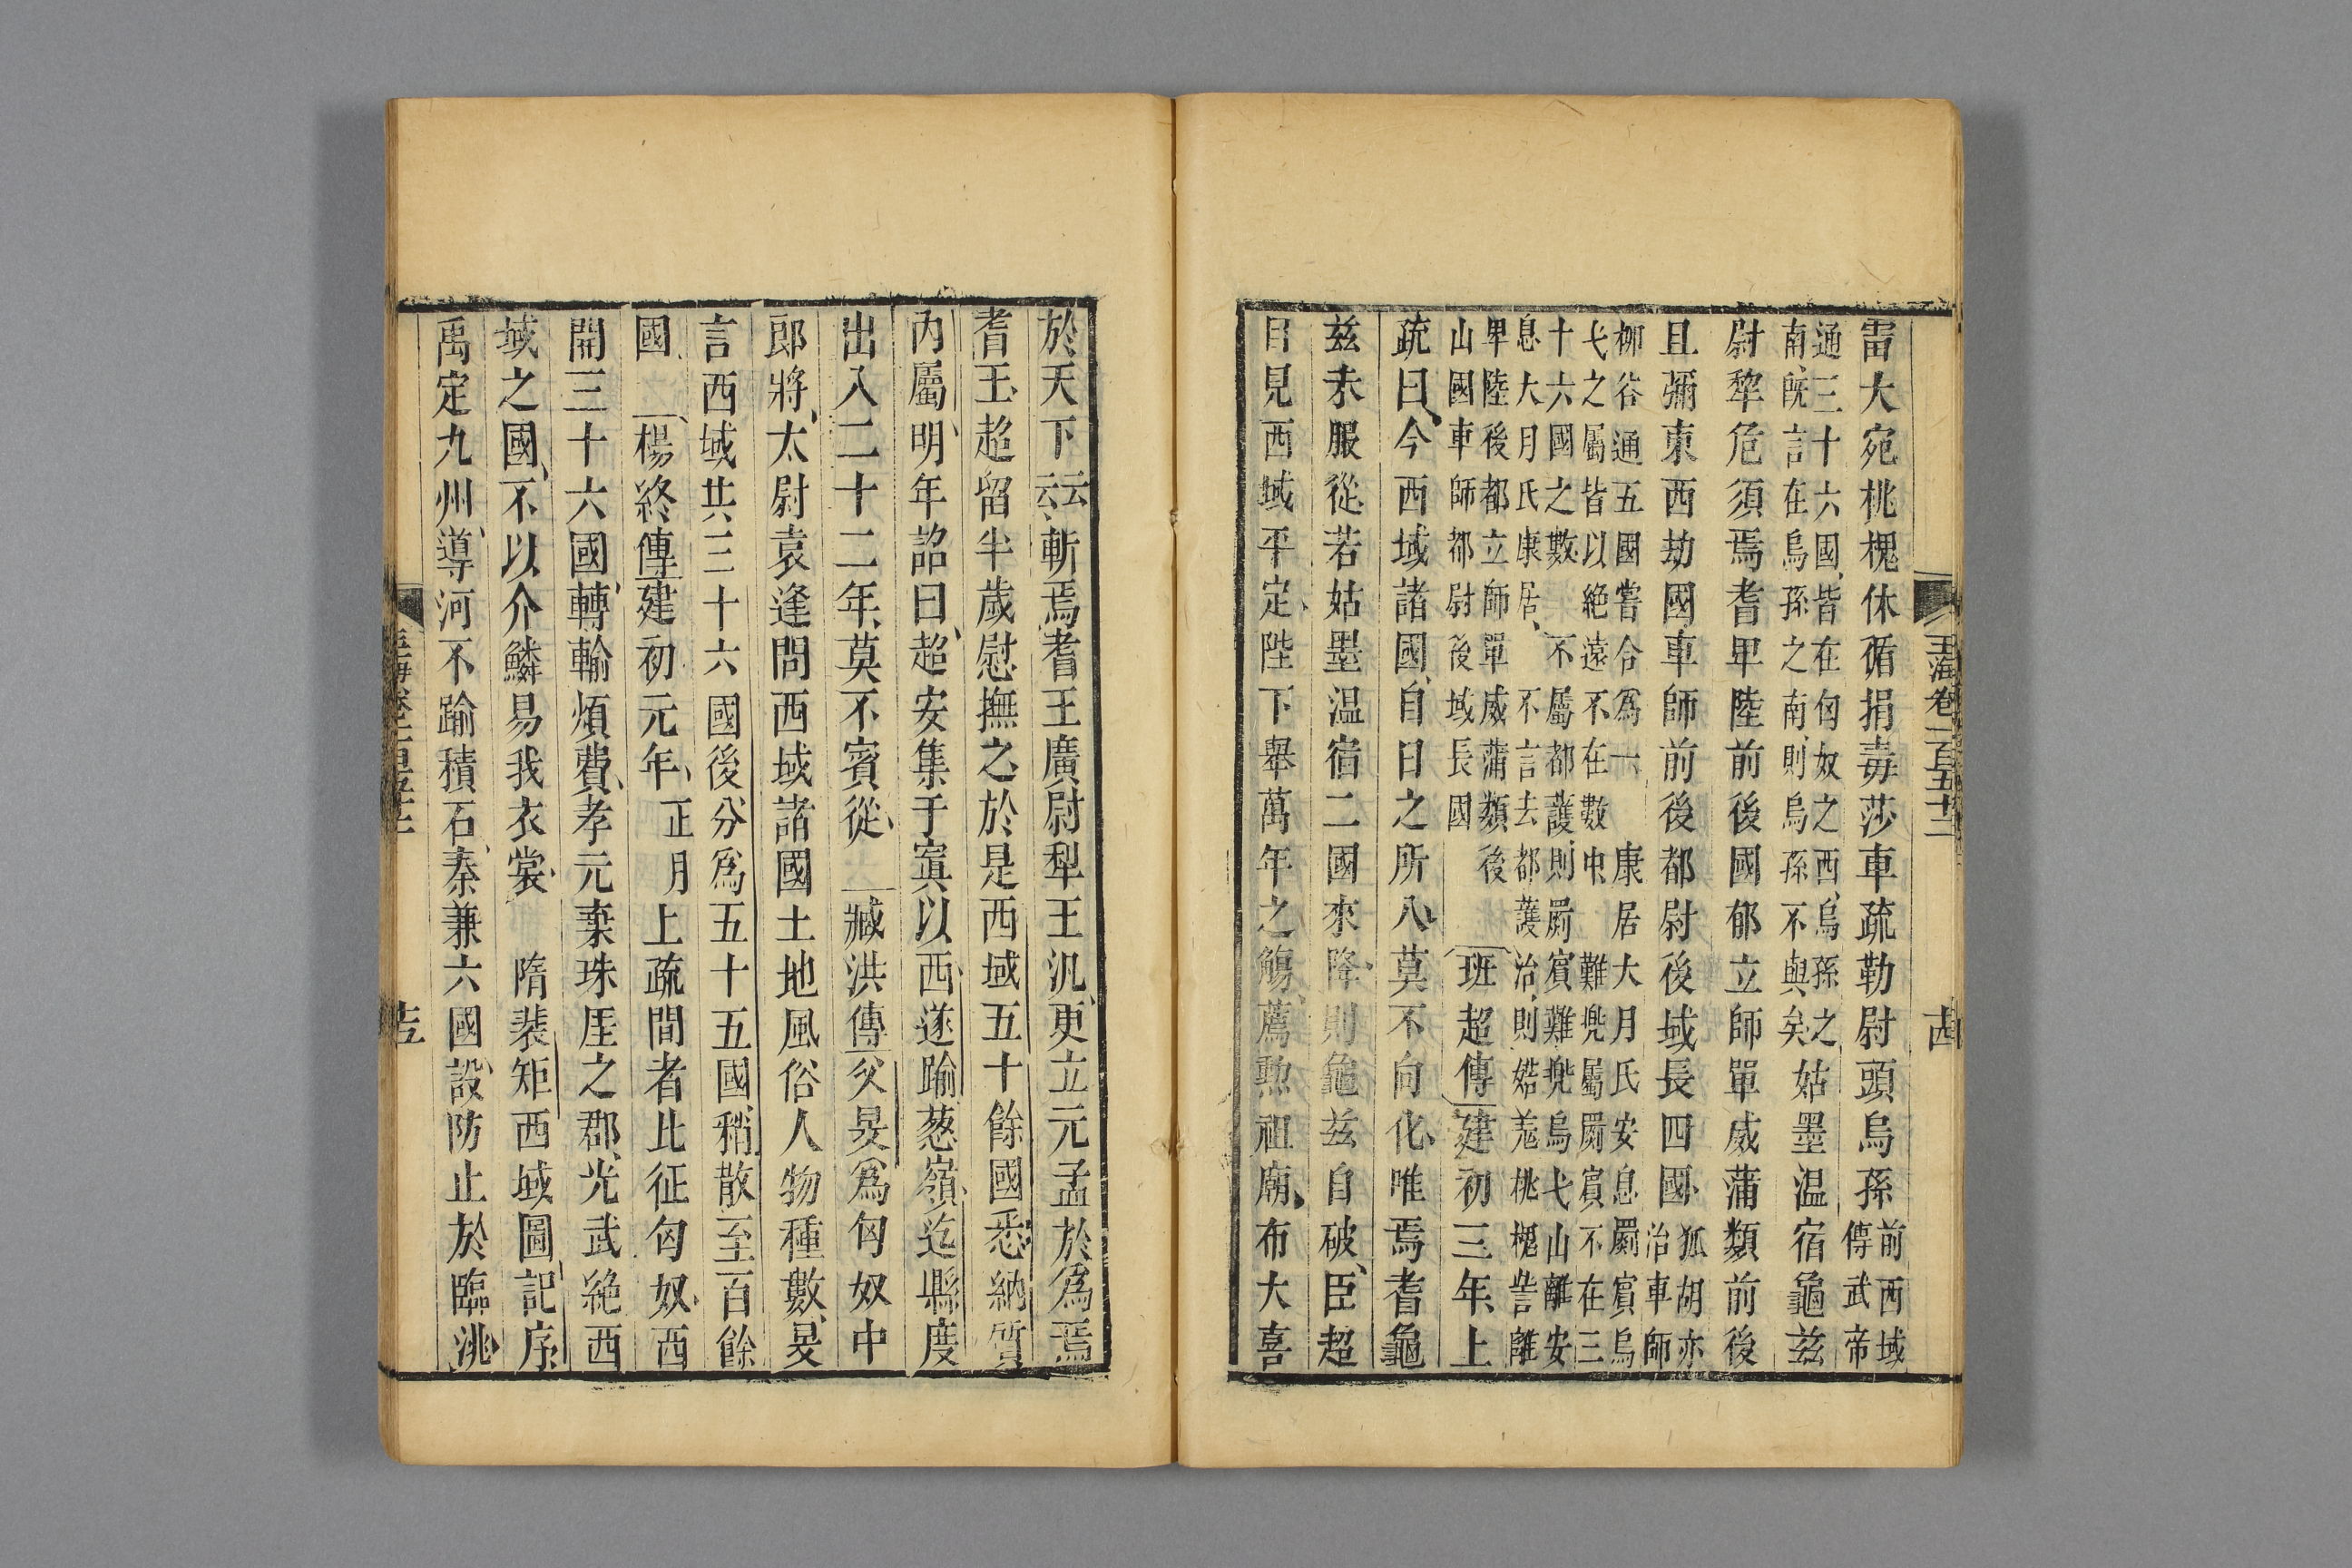 玉海卷一百五十二
雷大宛桃槐休循捐毒莎車疏勒尉頭烏孫前西域
傳武帝
通三十六國皆在匈奴之西烏孫之
南旣言在烏孫之南則烏孫不與矣姑墨温宿龜兹
尉犂危須焉耆卑陸前後國郁立師單威蒲類前後
且彌東西劫國車師前後都尉後域長四國狐胡亦
治車師
柳谷通五國嘗合爲一康居大月氏安息罽賓烏
弋之屬皆以絶遠不在數中難兠屬罽賓不在三
十六國之數不屬都護則罽賓難兠烏弋山離安
息大月氏康居不言去都護治則婼羌桃槐訾離
卑陸後都立師單威蒲類後
山國車師都尉後域長國班超傳建初三年上
疏曰今西域諸國自日之所入莫不向化唯焉耆龜
兹未服從若姑墨温宿二國來降則龜兹自破臣超
目見西域平定陛下舉萬年之觴薦勲祖廟布大喜
於天下云云斬焉耆王廣尉犁王汎更立元孟於爲焉
耆王超留半歲慰撫之於是西域五十餘國悉納質
内屬明年詔曰超安集于窴以西遂踰葱嶺迄縣度
出入二十二年莫不賓從臧洪傳父旻爲匈奴中
郎將太尉袁逢問西域諸國土地風俗人物種數旻
言西域共三十六國後分爲五十五國稍散至百餘
國楊終傳建初元年正月上疏間者北征匈奴西
開三十六國轉輸煩費孝元棄珠厓之郡光武絶西
域之國不以介鱗易我衣裳隋裴矩西域圖記序
禹定九州導河不踰積石秦兼六國設防止於臨洮